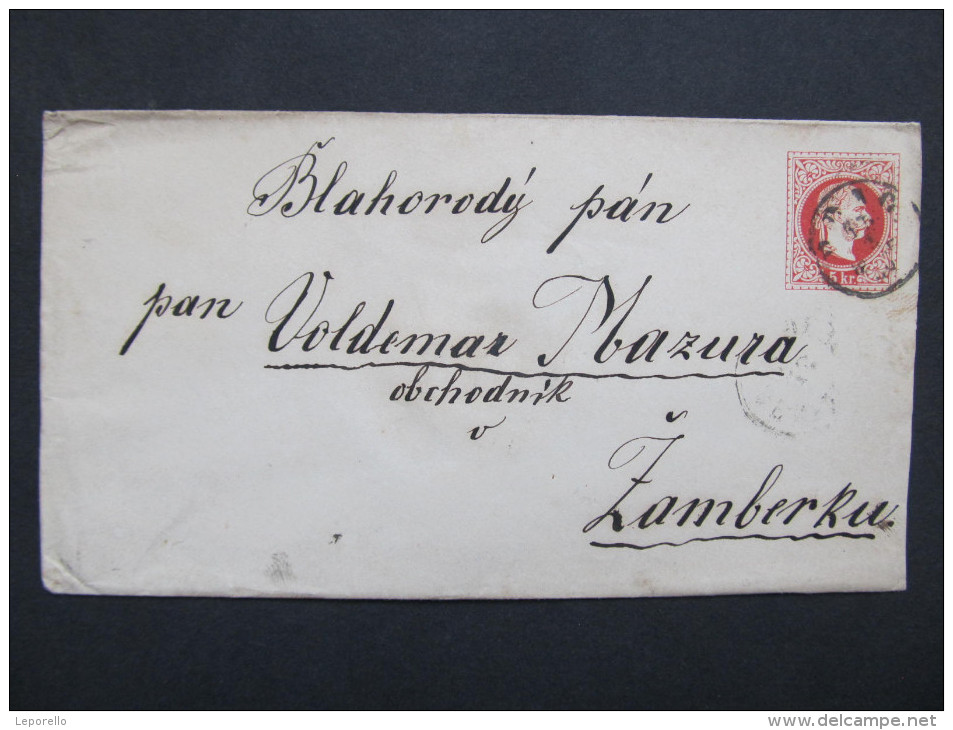 Blahorodý pán
pan Voldemar Mazura
obchodník
v
Žamberku.
5 kr.
Leporello
www.delcampe.net